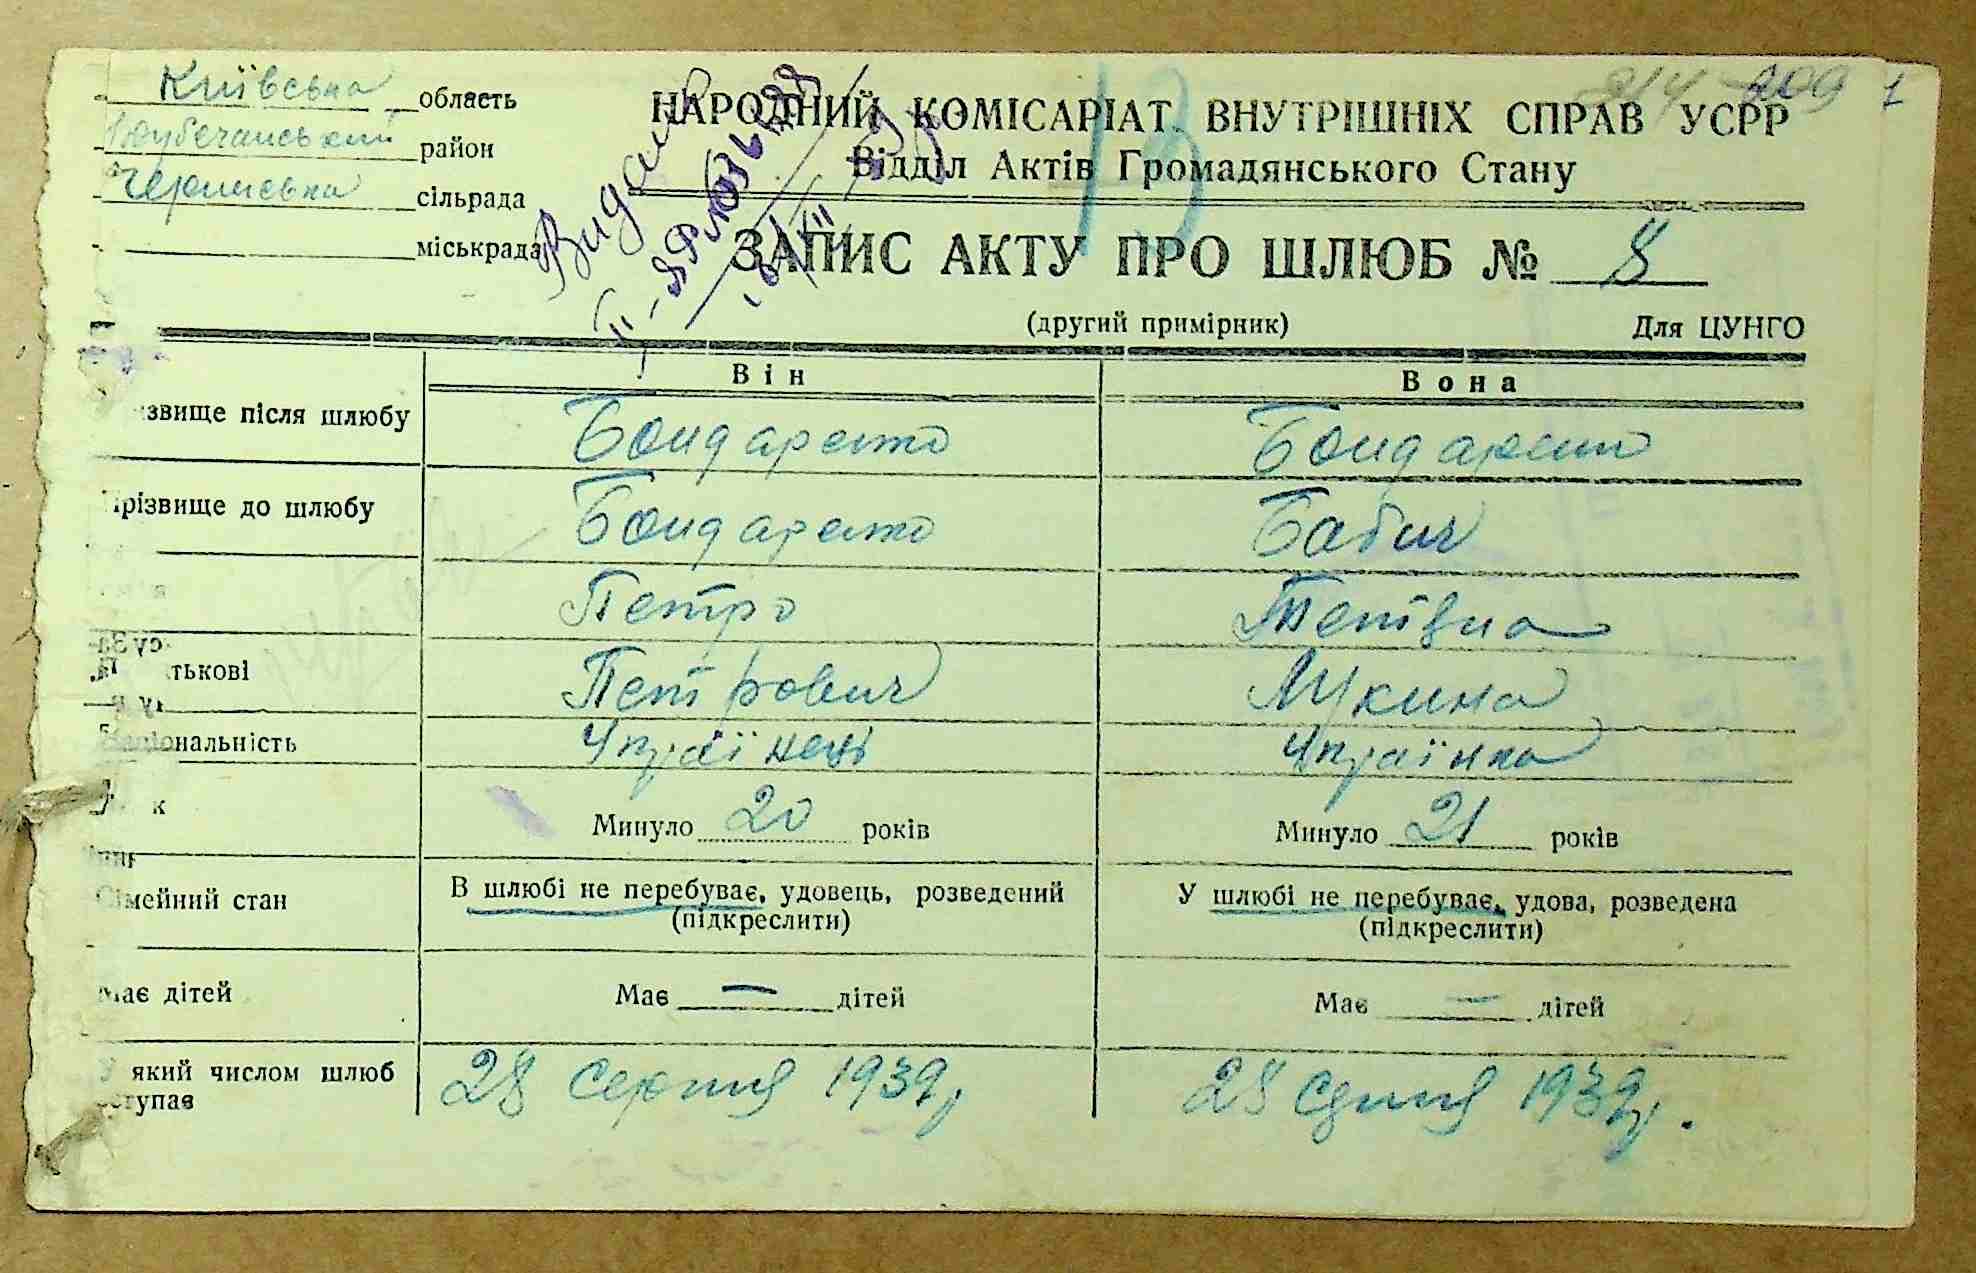 Київська область
район
сільрада
міськрада
НАРОДНИЙ КОМІСАРІАТ ВНУТРІШНІХ СПРАВ УСРР
Відділ Актів Громадянського Стану
13
Видано
ЗАПИС АКТУ ПРО ШЛЮБ № 8
(другий примірник) Для ЦУНГО
Він Вона
звище після шлюбу Бондаренко Бондаренко
Прізвище до шлюбу Бондаренко Бабич
Петро Тетяна
тькові Петрович Лукина
Національність Українець Українка
к Минуло 20 років Минуло 21 років
Сімейний стан В шлюбі не перебуває, удовець, розведений У шлюбі не перебуває, удова, розведена
(підкреслити) (підкреслити)
Має дітей Має — дітей Має — дітей
У який числом шлюб 28 серпня 1939 р. 28 серпня 1939 р.
ступає